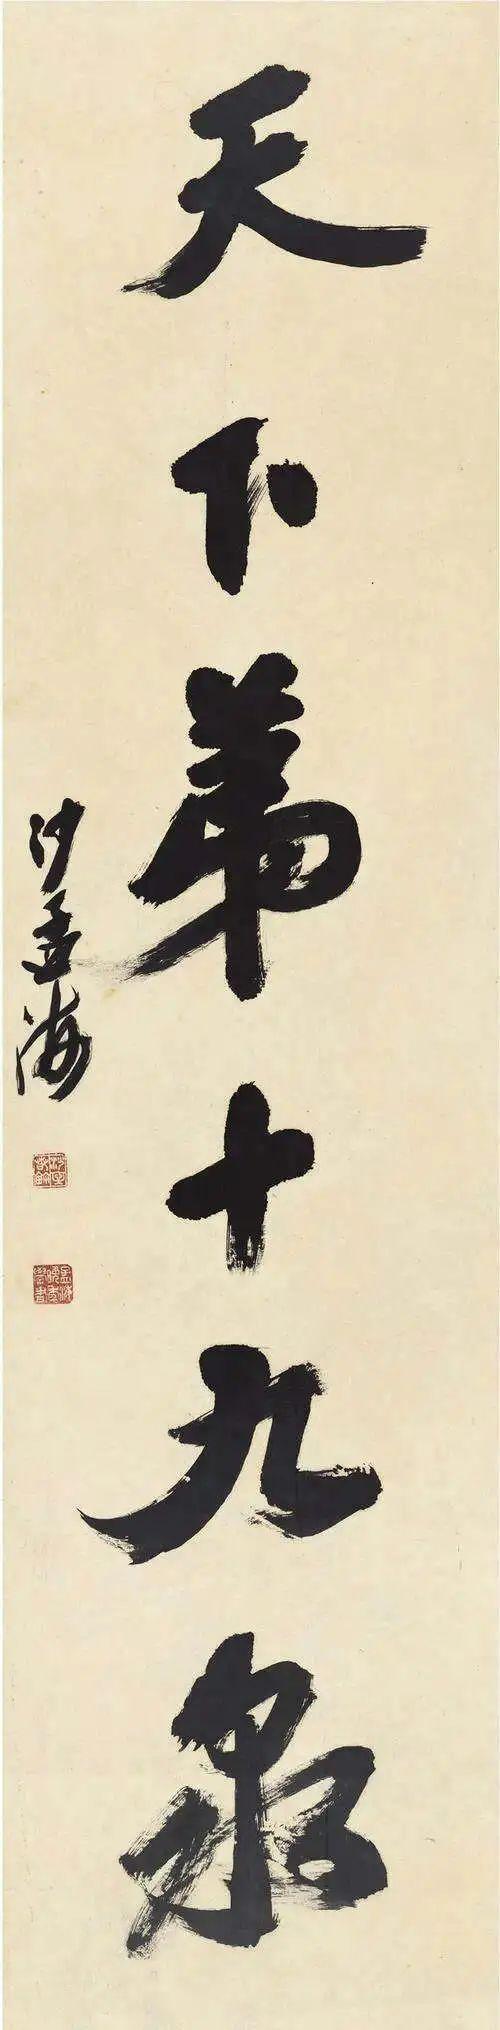 天下第十九泉
沙孟海